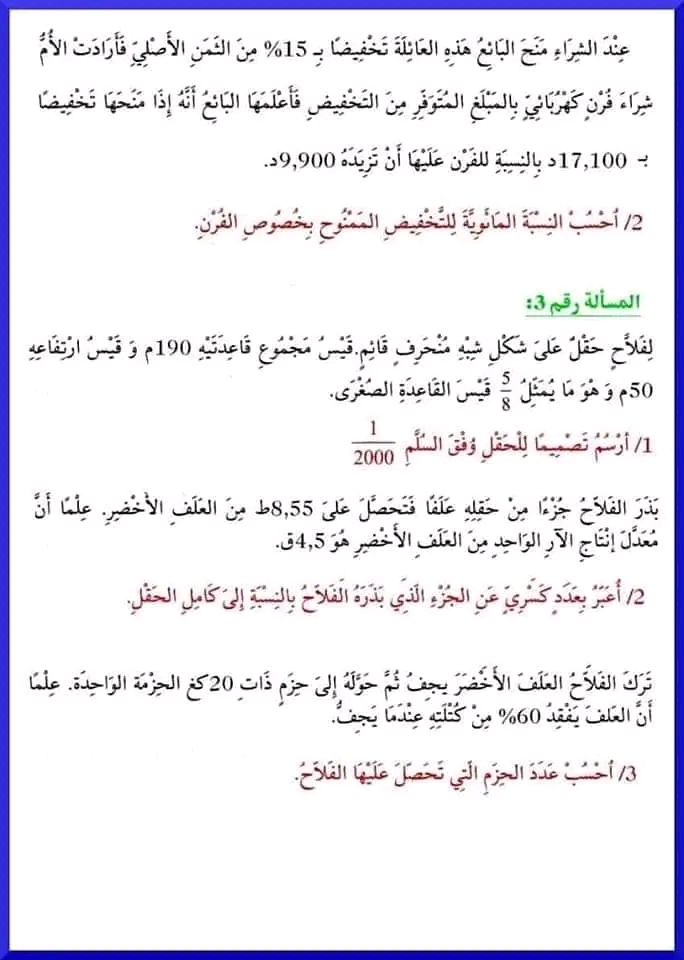 عِنْدَ الشِرَاءِ مَنَحَ البَائِعُ هَذِهِ العَائِلَةَ تَخْفِيضًا بِـ 15% مِنَ الثَمَنِ الأَصْلِيّ فَأَرَادَتْ الأُمُّ
شِرَاءَ فُرْنٍ كَهْرُبَائِيٍّ بِالمَبْلَغِ المُتَوَفّرِ مِنَ التَخْفِيضِ فَأَعْلَمَهَا البَائِعُ أَنَّهُ إِذَا مَنَحَهَا تَخْفِيضًا
بـ 17,100د بِالنِسِبَةِ للفَرْن عَلَيْهَا أَنْ تَزِيدَهُ 9,900د.
2/ أحْسُبْ النِسْبَةَ المَائَوِيَّةَ لِلتَّخْفِيضِ المَمْنُوحِ بِخُصُوصِ الفُرْنِ.
المسألة رقم 3:
لِفَلاَّحٍ حَقْلٌ عَلىَ شَكْلِ شِبْهِ مُنْحَرِفٍ قَائِمٍ.قَيْسُ مَجْمُوعِ قَاعِدَتَيْهِ 190م وَ قَيْسُ ارْتِفَاعِهِ
50م وَ هْوَ مَا يُمَثِّلُ 5/8 قَيْسَ القَاعِدَةِ الصُغْرَى.
1/ أرْسُمُ تَصْمِيمًا لِلْحَقْلِ وُفْقَ السُلَّمِ 1/2000
بَذَرَ الفَلاَحُ جُزْءًا مِنْ حَقِلِهِ عَلَفًا فَتَحَصَّلَ عَلىَ 8,55ط مِنَ العَلَفِ الأَخْضَرِ. عِلْمًا أَنَّ
مُعَدَّلَ إنْتَاجِ الآرِ الوَاحِدِ مِنَ العَلَفِ الأَخْضَرِ هُوَ 4,5ق.
2/ أُعَبّرُ بِعَدَدٍ كَسْرِيٍّ عَنِ الجُزْءِ الّذِي بَذَرَهُ الفَلاَحُ بِالنِسْبَةِ إِلىَ كَامِلِ الحَقْلِ.
تَرَكَ الفَلاَحُ العَلَفَ الأَخْضَرَ يجِفُ ثُمَّ حَوَّلَهُ إِلىَ حِزَمٍ ذَاتِ 20كغ الحِزْمَة الوَاحِدَة. عِلْمًا
أَنَّ العَلَفَ يَفْقِدُ 60% مِنْ كُتْلَتِهِ عِنْدَمَا يَجِفُّ.
3/ أحْسُبْ عَدَدَ الحِزَمِ الّتِي تَحَصّلَ عَلَيْهَا الفَلاَحُ.